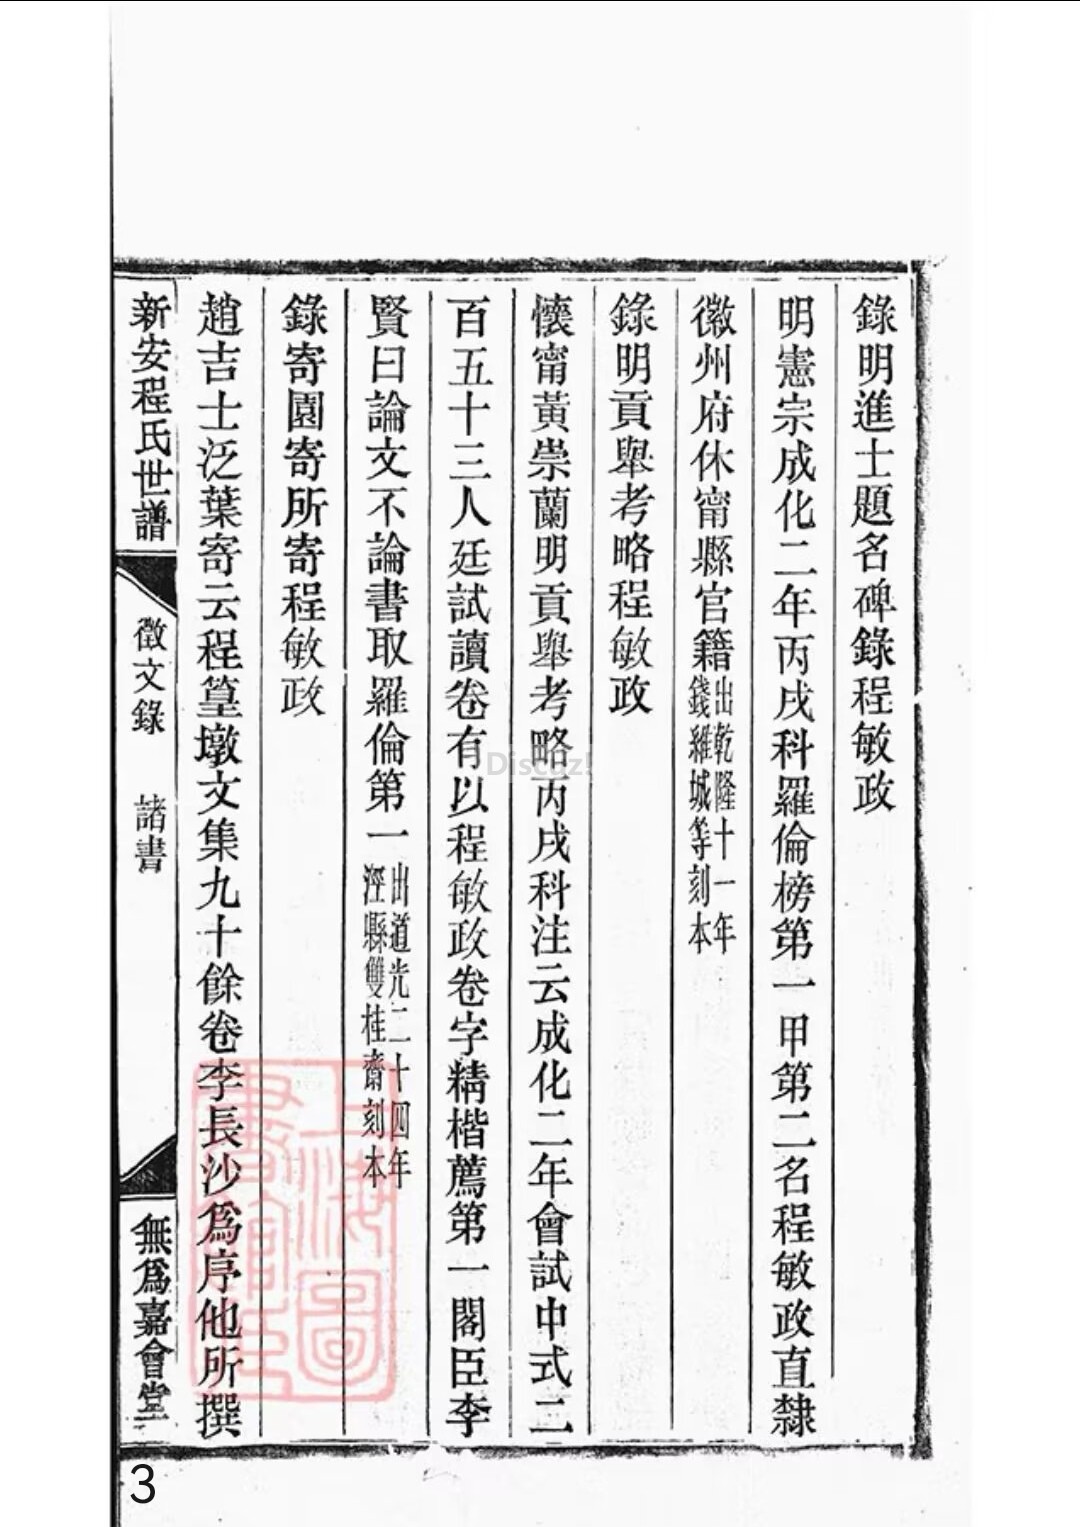 錄明進士題名碑錄程敏政
明憲宗成化二年丙戌科羅倫榜第一甲第二名程敏政直隸
徽州府休甯縣官籍出乾隆十一年錢維城等刻本
錄明貢舉考略程敏政
懷甯黃崇蘭明貢舉考略丙戌科注云成化二年會試中式二
百五十三人廷試讀卷有以程敏政卷字精楷薦第一閣臣李
賢曰論文不論書取羅倫第一出道光二十四年涇縣雙桂齋刻本
錄寄園寄所寄程敏政
趙吉士泛葉寄云程篁墩文集九十餘卷李長沙爲序他所撰
新安程氏世譜
徵文錄 諸書
無爲嘉會堂
上海圖書館藏
Discuz!
3